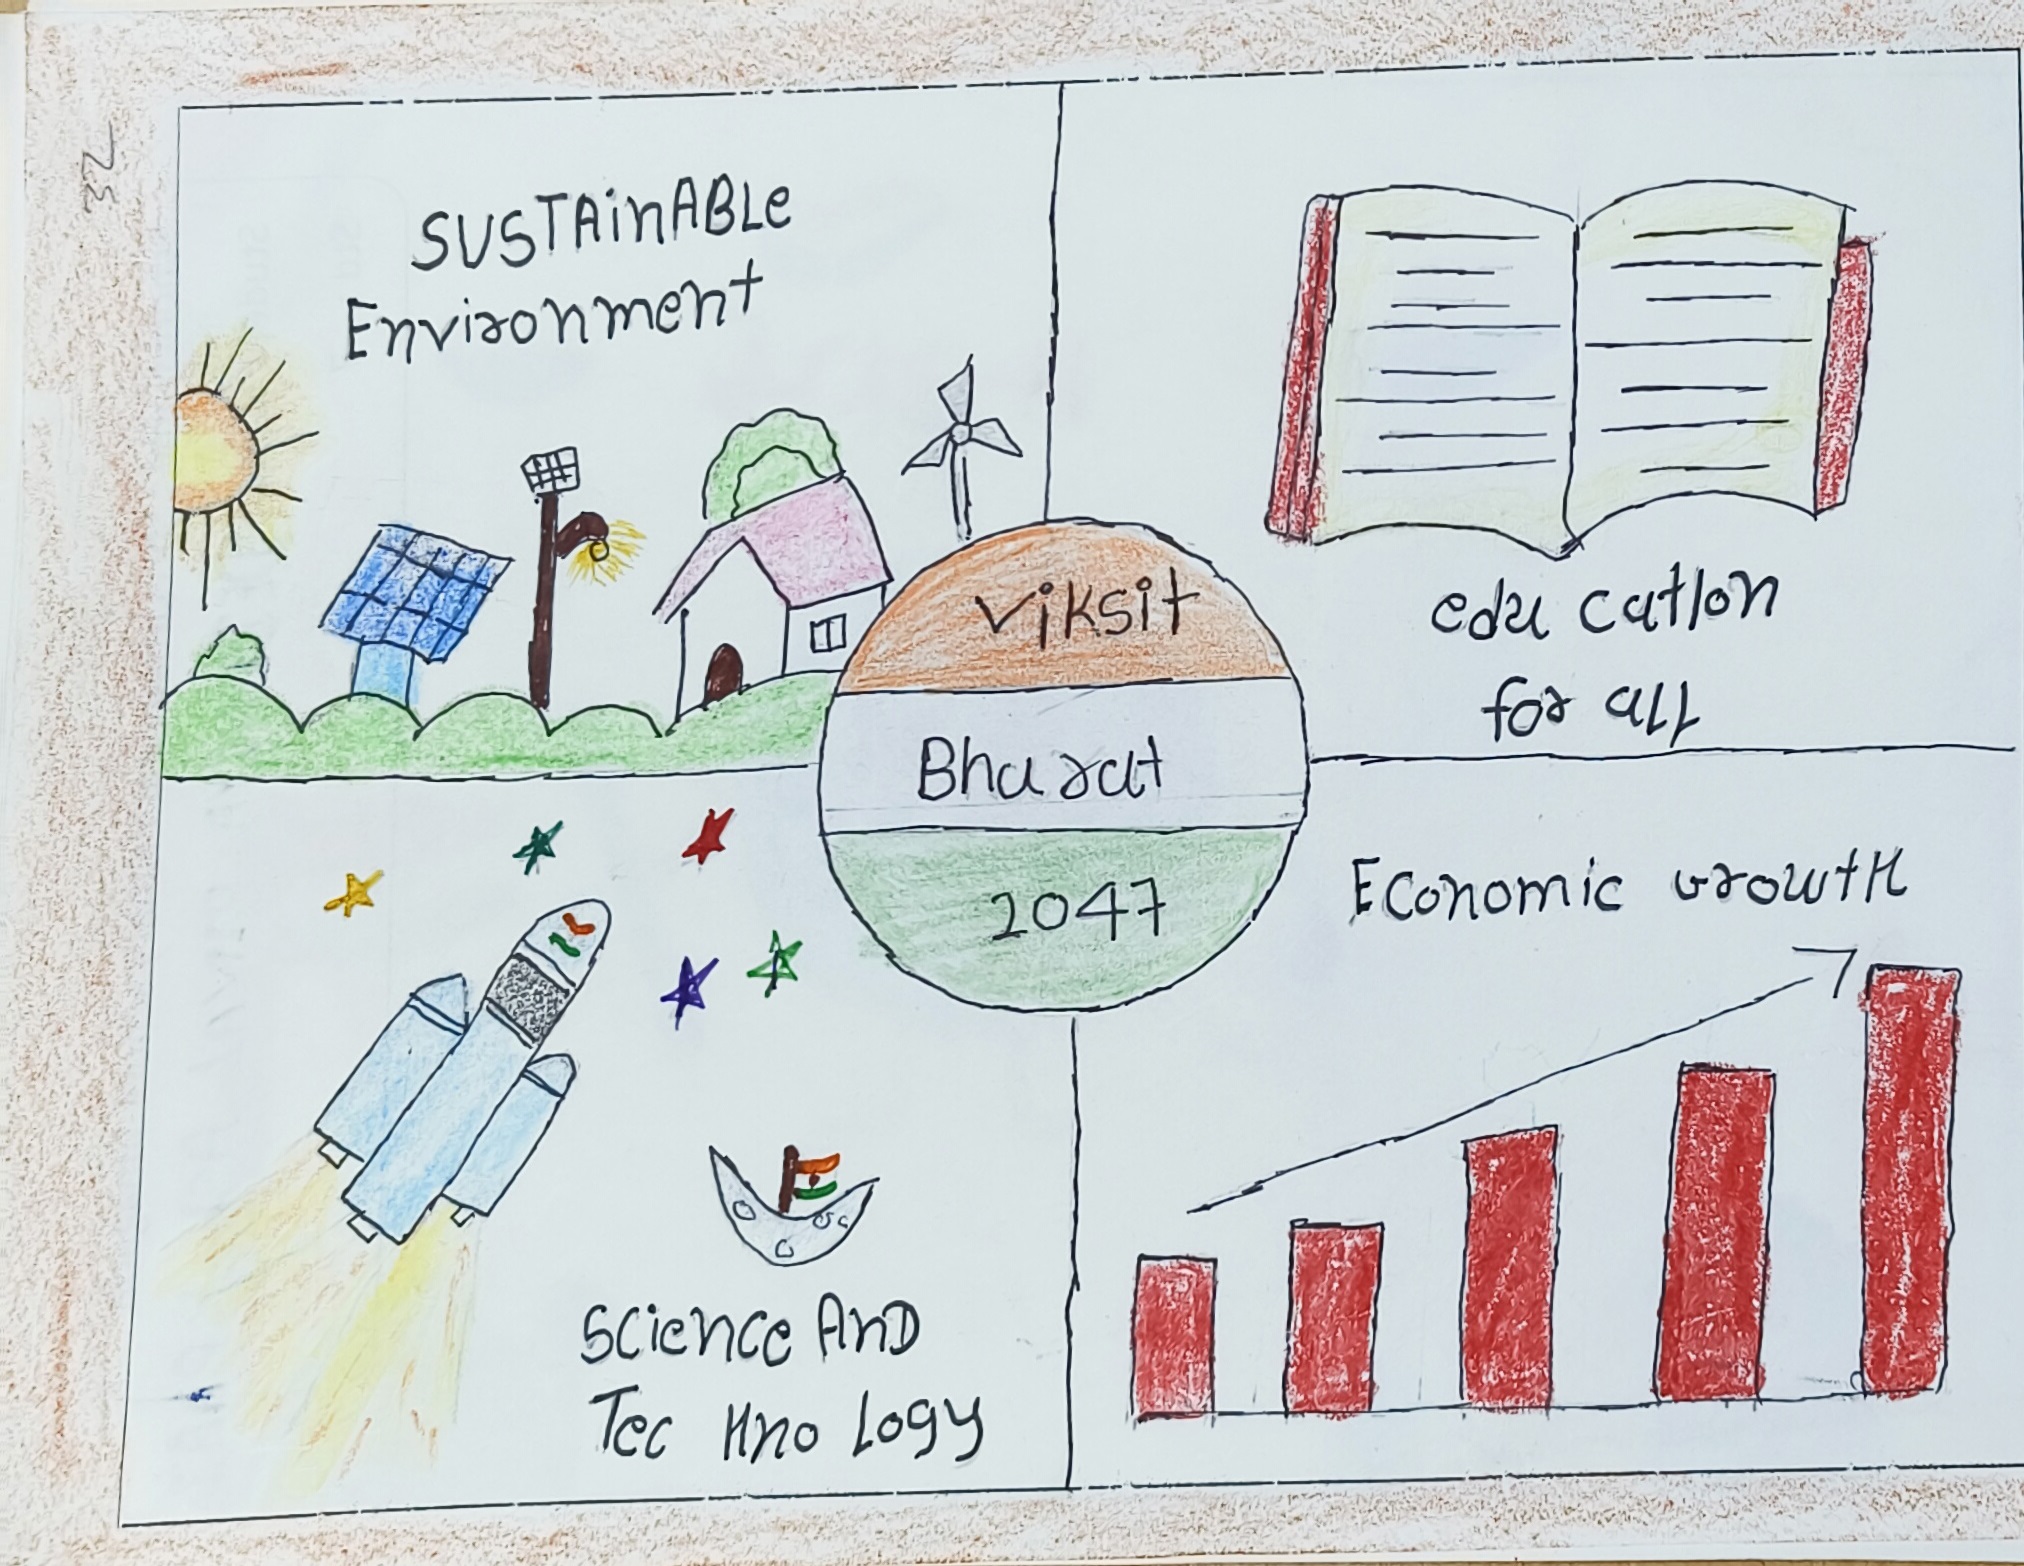 32
SUSTAinABLe
Environment
education
for all
Viksit
Bharat
2047
Economic Growth
Science AnD
TecHnoLogy